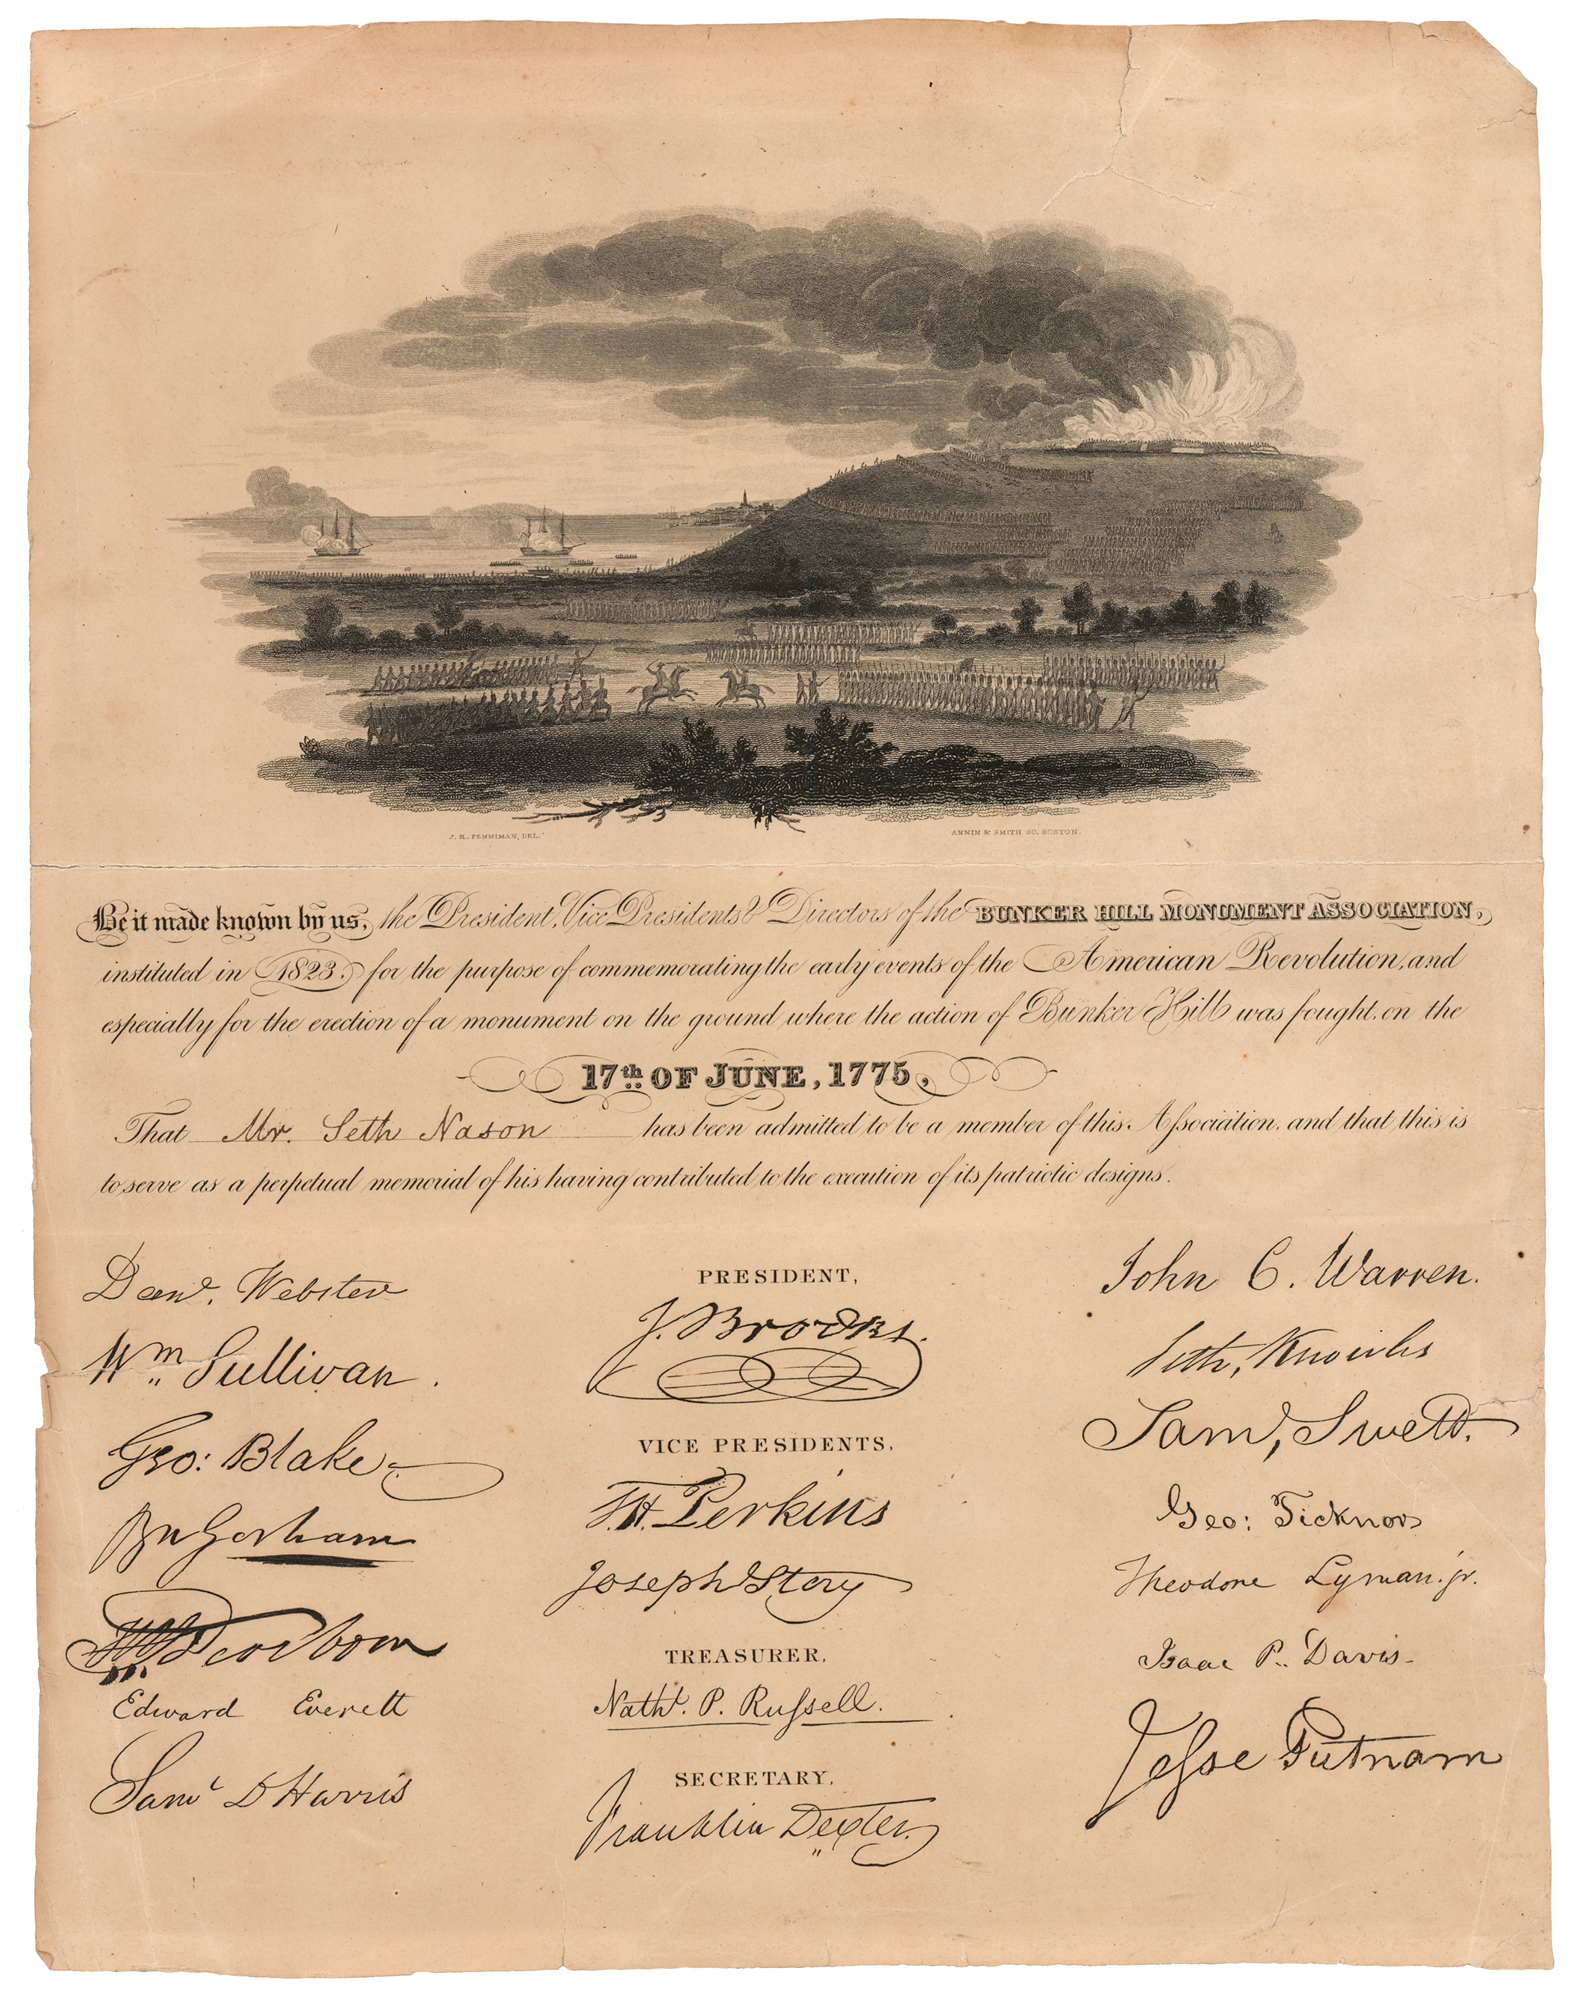 J. R. PENNIMAN, DEL.
ANNIN & SMITH SC. BOSTON.
Be it made known by us, the President, Vice Presidents & Directors of the BUNKER HILL MONUMENT ASSOCIATION,
instituted in 1823, for the purpose of commemorating the early events of the American Revolution, and
especially for the erection of a monument on the ground where the action of Bunker Hill was fought, on the
17th OF JUNE, 1775,
That Mr. Seth Nason has been admitted to be a member of this Aſsociation, and that this is
to serve as a perpetual memorial of his having contributed to the execution of its patriotic designs.
Danl. Webster
Wm Sullivan.
Geo: Blake
Bn Gorham
Dearborn
Edward Everett
Saml D Harris
PRESIDENT,
J. Brooks.
VICE PRESIDENTS,
T.H. Perkins
Joseph Story
TREASURER,
Nathl. P. Ruſsell.
SECRETARY,
Franklin Dexter.
John C. Warren.
Seth, Knowles
Saml, Swett.
Geo: Ticknor
Theodore Lyman. jr.
Isaac P. Davis.
Jeſse Putnam